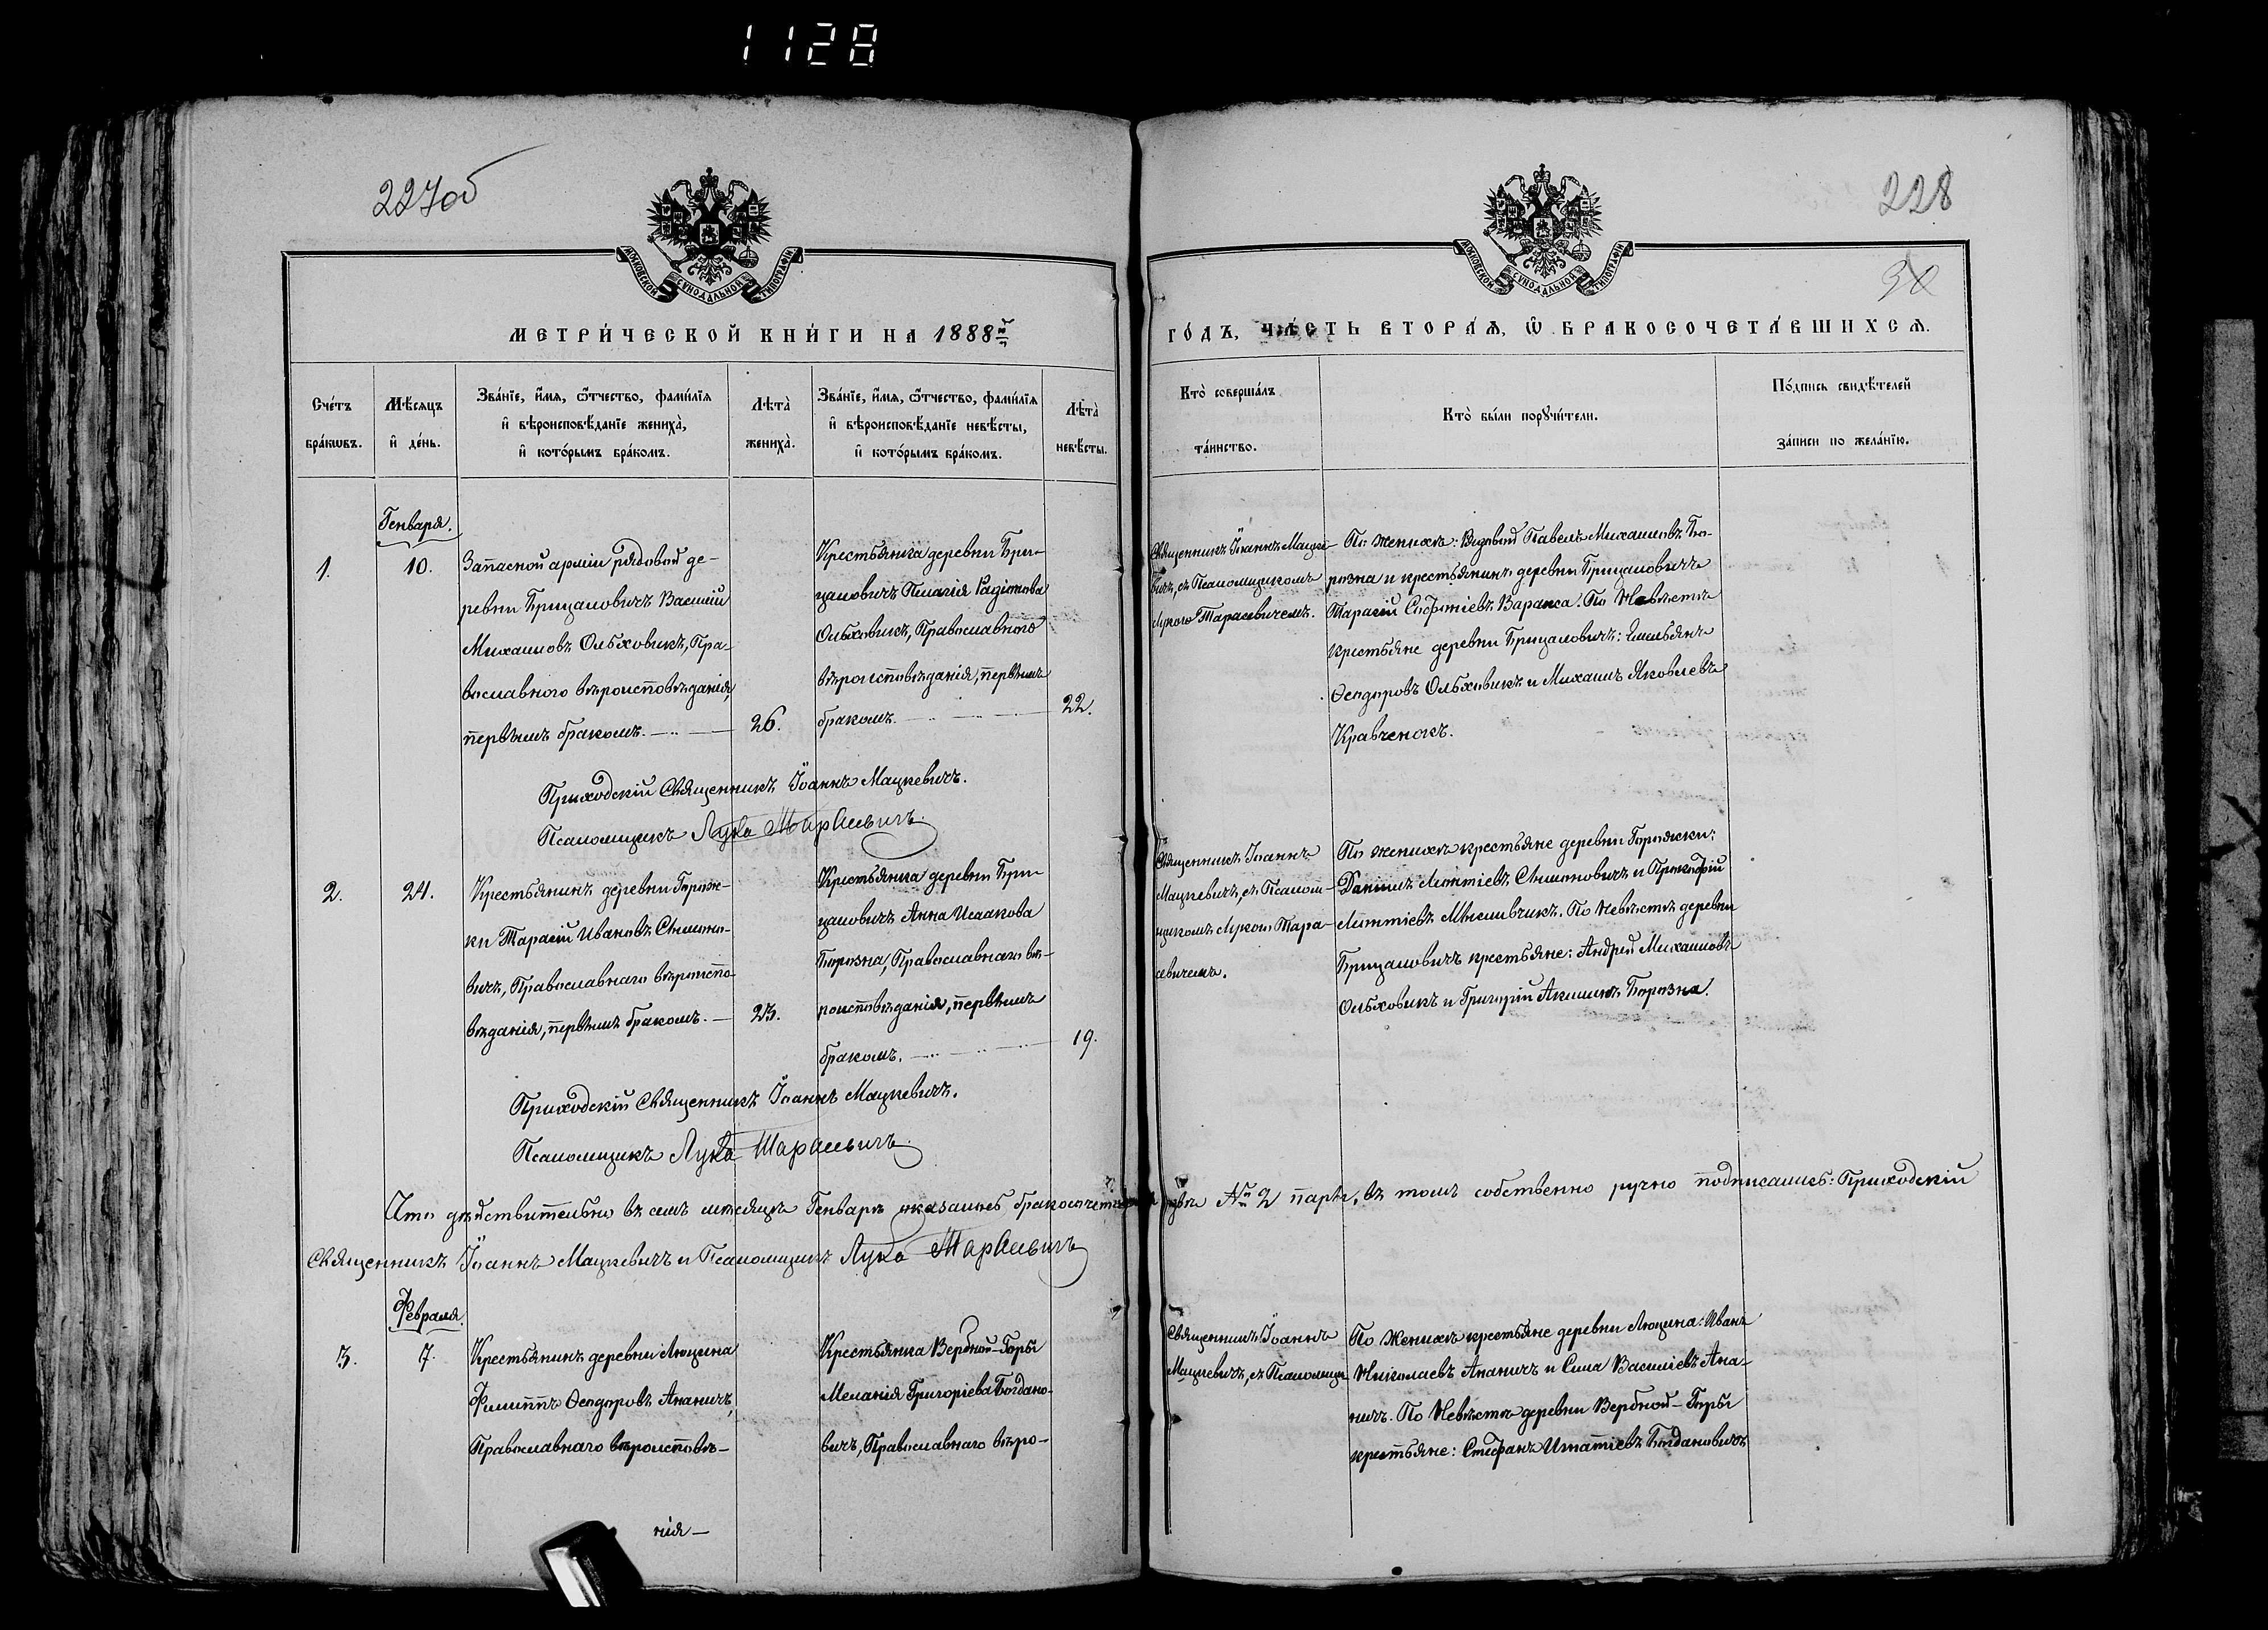 1128
227об
228
МОСКОВСКОЙ СѴНОДАЛЬНОЙ ТИПОГРАФІИ
МОСКОВСКОЙ СѴНОДАЛЬНОЙ ТИПОГРАФІИ
МЕТРИ́ЧЕСКОЙ КНИ́ГИ НА 1888й
ГО́ДЪ, ЧА́СТЬ ВТОРА́Ѧ, Ѿ БРАКОСОЧЕТА́ВШИХСѦ.
Сче́тъ
бра́кѡвъ.
Мѣ́сѧцъ
и҆ де́нь.
Зва́нїе, и҆́мѧ, ѻ҆́тчество, фами́лїѧ
и҆ вѣроисповѣ́данїе жениха̀,
и҆ кото́рымъ бра́комъ.
Лѣта̀
жениха̀.
Зва́нїе, и҆́мѧ, ѻ҆́тчество, фами́лїѧ
и҆ вѣроисповѣ́данїе невѣ́сты,
и҆ кото́рымъ бра́комъ.
Лѣта̀
невѣ́сты.
Кто̀ соверша́лъ
та́инство.
Кто̀ бы́ли порꙋчи́тели.
По́дпись свидѣ́телей
за́писи по жела́нїю.
Генваря.
1.
10.
Запасной арміи рядовой де-
ревни Брицаловичъ Василій
Михаиловъ Ольховикъ, Пра-
вославнаго вѣроисповѣданія,
первымъ бракомъ.
26.
Крестьянка деревни Бри-
цаловичъ Пелагія Радіонова
Ольховикъ, Православнаго
вѣроисповѣданія, первымъ
бракомъ.
22.
Священникъ Іоаннъ Мацке-
вичъ, съ Псаломщикомъ
Лукою Тарасевичемъ.
По женихѣ: Рядовой Павелъ Михаиловъ Бо-
розна и крестьянинъ деревни Брицаловичъ
Тарасій Софроніевъ Варакса. По Невѣстѣ
крестьяне деревни Брицаловичъ: Емельянъ
Ѳеодоровъ Ольховикъ и Михаилъ Яковлевъ
Кравченокъ.
Приходскій Священникъ Іоаннъ Мацкевичъ.
Псаломщикъ Лука Тарасевичъ
2.
24.
Крестьянинъ деревни Горож-
ки Тарасій Ивановъ Симоно-
вичъ, Православнаго вѣроиспо-
вѣданія, первымъ бракомъ.
23.
Крестьянка деревни Бри-
цаловичъ Анна Исаакова
Борозна, Православнаго вѣ-
роисповѣданія, первымъ
бракомъ.
19.
Священникъ Іоаннъ
Мацкевичъ, съ Псалом-
щикомъ Лукою Тара-
севичемъ.
По женихѣ крестьяне деревни Горожки:
Даніилъ Леонтіевъ Симоновичъ и Прокофій
Леонтіевъ По Невѣстѣ деревни
Брицаловичъ крестьяне: Андрей Михаиловъ
Ольховикъ и Григорій Борозна.
Приходскій Священникъ Іоаннъ Мацкевичъ.
Псаломщикъ Лука Тарасевичъ
Что дѣйствительно въ семъ мѣсяцѣ Генварѣ показанныхъ № 2 пары, въ томъ собственно ручно подписались: Приходскій
Священникъ Іоаннъ Мацкевичъ и Псаломщикъ Лука Тарасевичъ
Февраля.
3.
7.
Крестьянинъ деревни Лющина
Филиппъ Ѳеодоровъ Ананичъ,
Православнаго вѣроисповѣ-
Крестьянка Вербной-Горы
Меланія Григоріева Богдано-
вичъ, Православнаго вѣро-
Священникъ Іоаннъ
Мацкевичъ, съ Псаломщи-
По Женихѣ крестьяне деревни Лющина: Иванъ
Николаевъ Ананичъ и Сила Василіевъ Ана-
ничъ. По Невѣстѣ деревни Вербной-Горы
крестьяне: Стефанъ Игнатіевъ Богдановичъ
нія-